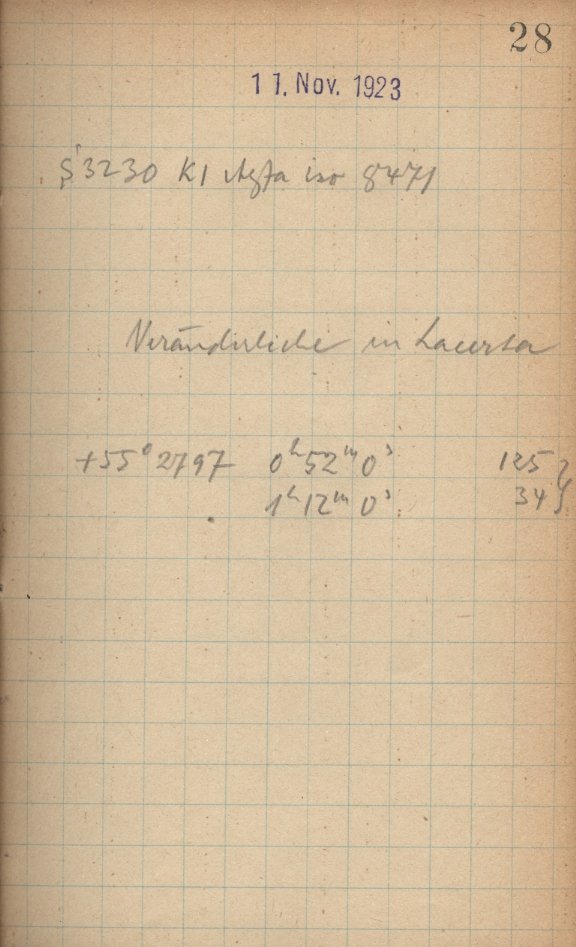 28
11. Nov. 1923
S 3230 K1 Agfa iso 8471
Veränderliche in Lacerta
+55° 2797 0ʰ52ᵐ0ˢ 125 }
1ʰ12ᵐ0ˢ 34 }